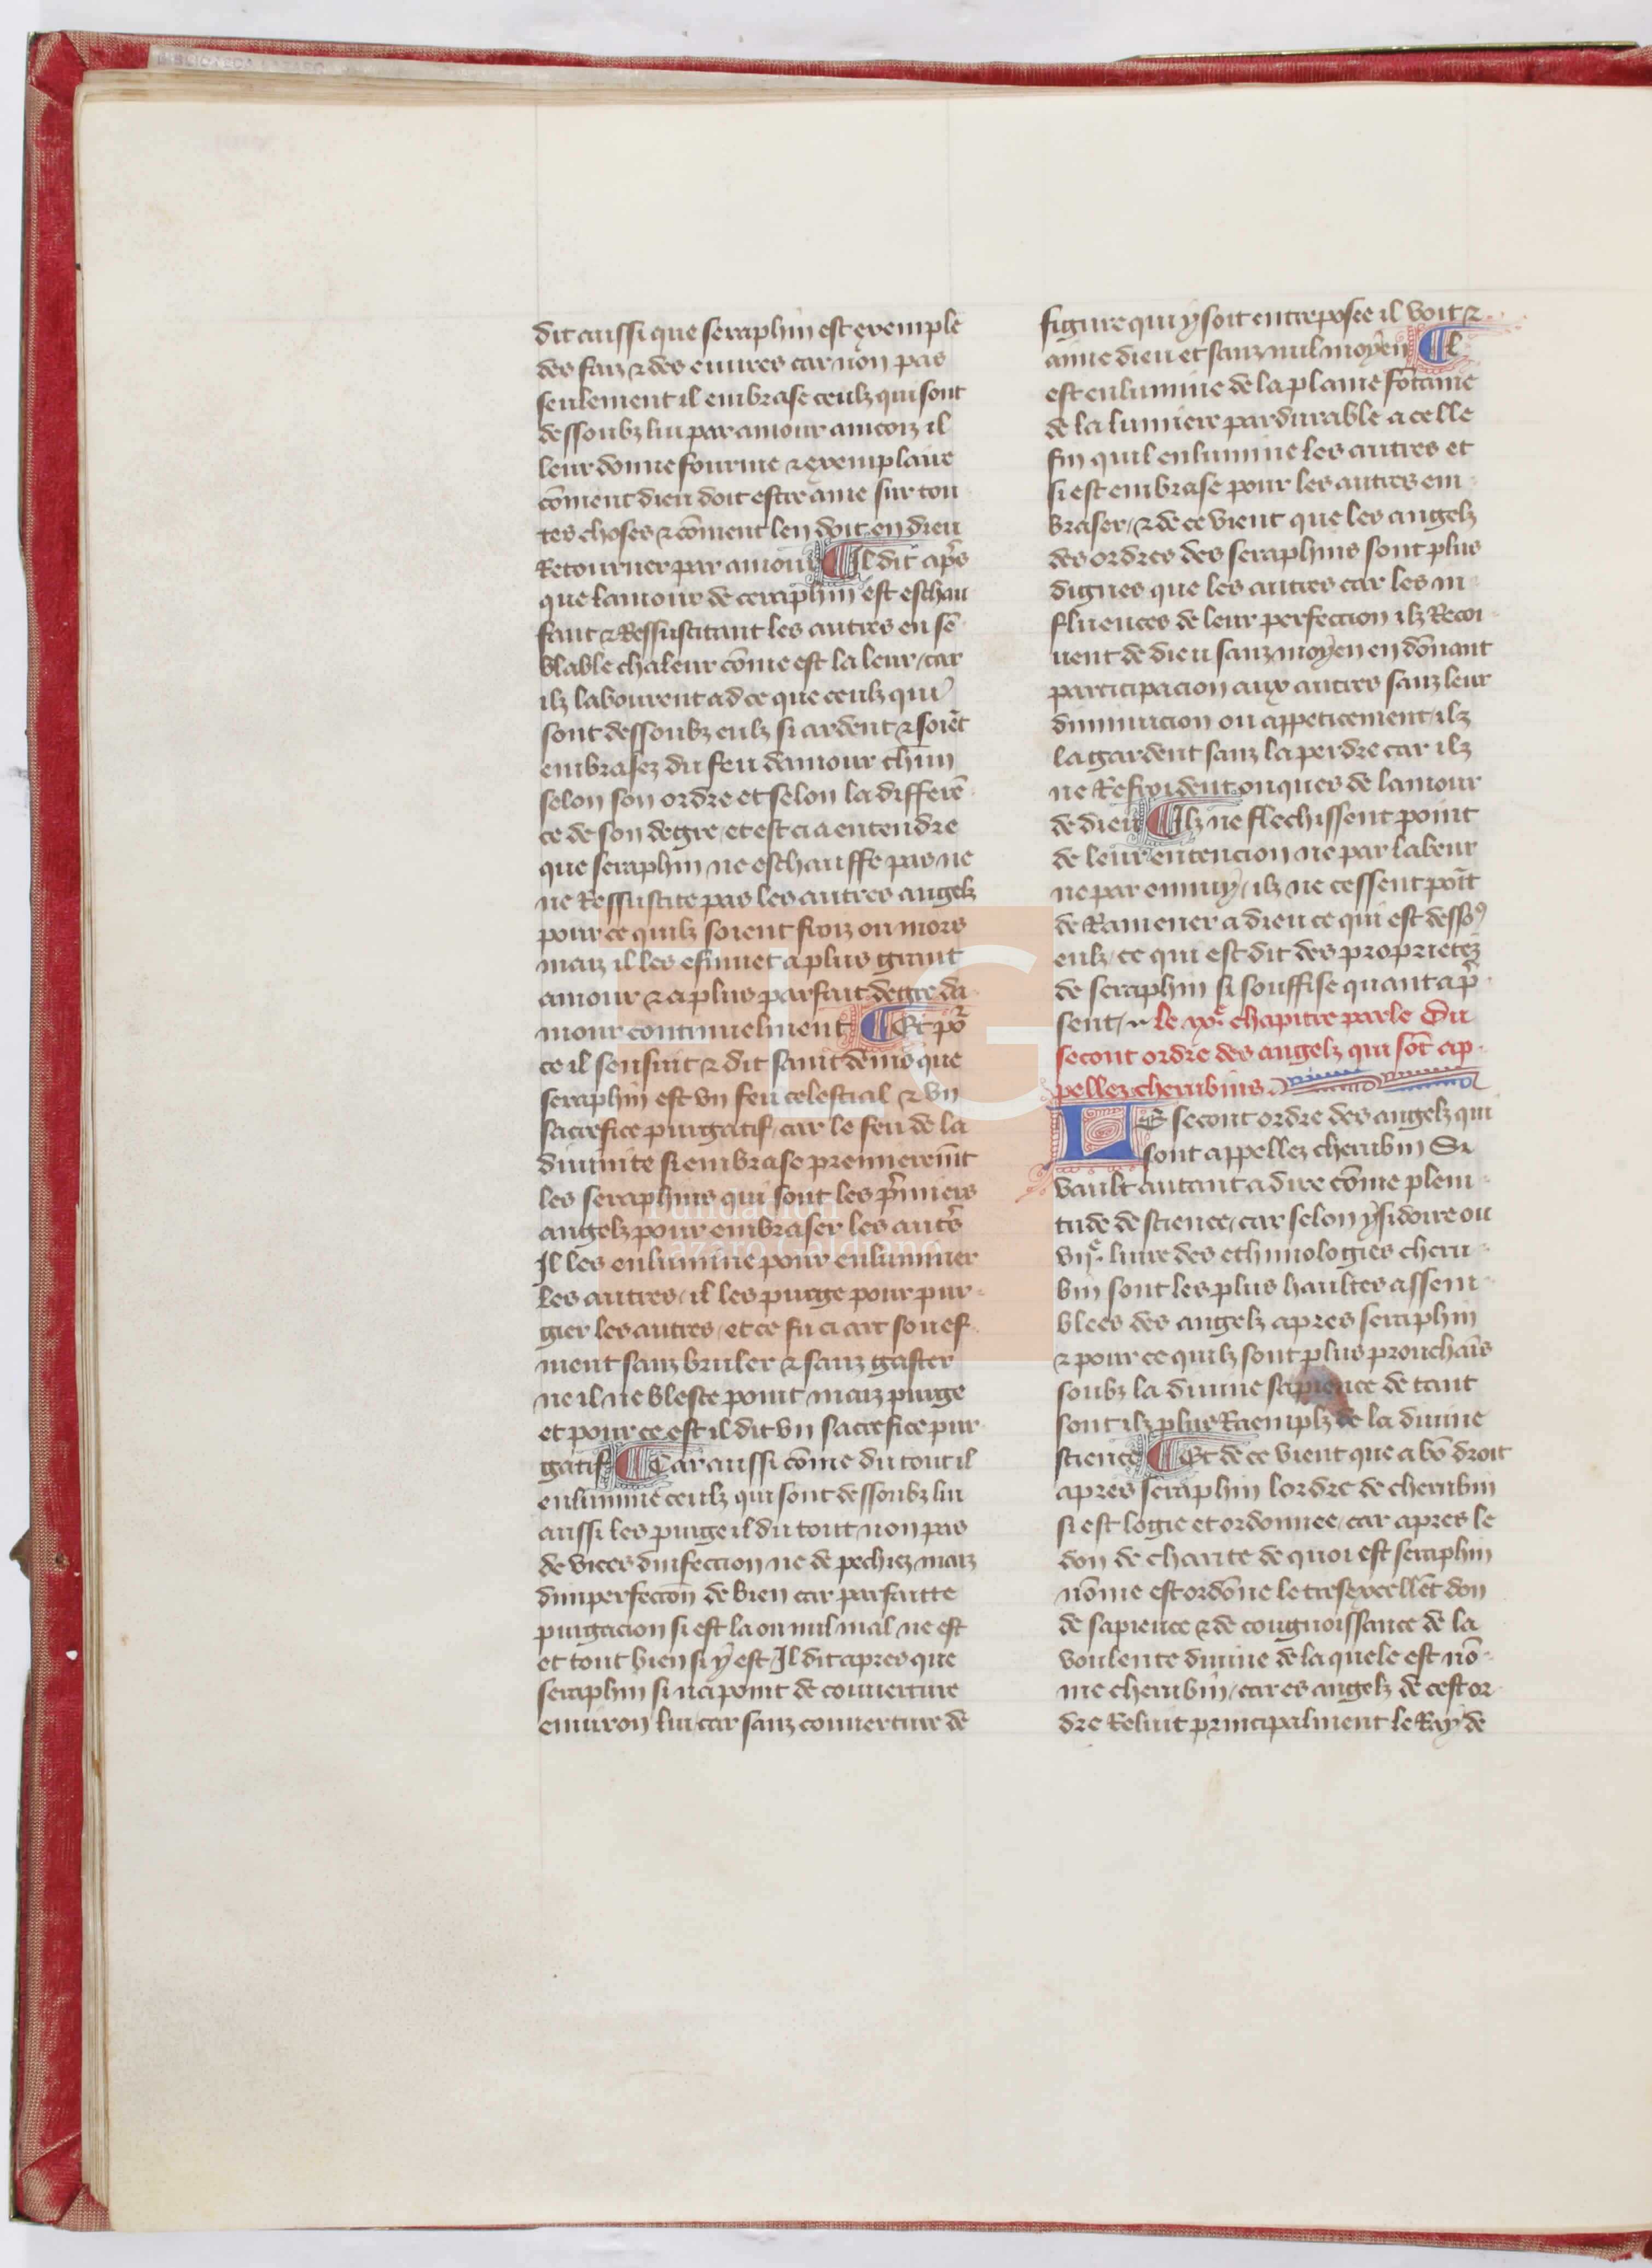 BIBLIOTECA LAZARO
dit aussi que seraphin est exemple
des fais ⁊ des euures car non pas
seulement il embrase ceulz qui sont
dessoubz lui par amour aincoiz il
leur donne fourme ⁊ exemplaire
cōment dieu doit estre ame sur tou
tes choses ⁊ cōment len doit en dieu
Retourner par amour ¶ Il dit apr̄s
que lamour de ceraphin est eschau
fant ⁊ Ressuscitant les autres en sē
blable chaleur cōme est la leur / car
ilz labourent ad ce que ceulz qui
sont dessoubz eulz si ardent ⁊ soiēt
embrasez du feu damour chūn
selon son ordre et selon la differē
ce de son degre / et est ci a entendre
que seraphin ne eschauffe pas ne
ne Ressuscite pas les autres angelz
pour ce quilz soient froiz ou mors
maiz il les esmuet a plus grant
amour ⁊ a plus parfait degre da
mour continuelment ¶ Et po^r
ce il sensuit ⁊ dit saint denis que
seraphin est vn feu celestial ⁊ vn
sacrefice purgatif / car le feu de la
diuinite si embrase premieremt̄
les seraphins qui sont les p̄miers
angelz pour embraser les autr̄s
Il les enlumine pour enluminer
les autres / il les purge pour pur-
gier les autres / et ce fu ci art souef-
ment sanz bruler ⁊ sanz gaster
ne il ne bleste point maiz purge
et pour ce est il dit vn sacrefice pur-
gatif ¶ Car aussi cōme du tout il
enlumine ceulz qui sont dessoubz lui
aussi les purge il du tout non pas
de vices dinfection ne de pechiez maiz
dimperfectiōn de bien car parfaitte
purgacion si est la ou nul mal ne est
et tout bien si y est / Il dit apres que
seraphin si na point de couuerture
enuiron lui / car sanz couuerture de
figure qui y soit entreposee il voit ⁊
aime dieu et sanz nul moyen ¶ Il
est enlumine de la plaine fōtaine
de la lumiere pardurable a celle
fin quil enlumine les autres et
si est embrase pour les autres em-
braser / ⁊ de ce vient que les angelz
des ordres des seraphins sont plus
dignes que les autres car les in-
fluences de leur perfeccion ilz Recoi-
uent de dieu sanz moyen en dōnant
participacion aux autres sanz leur
diminucion ou appeticement / ilz
la gardent sanz la perdre car ilz
ne Refroident onques de lamour
de dieu ¶ Ilz ne flechissent point
de leur entencion ne par labeur
ne par ennuy / ilz ne cessent poīt
de Ramener a dieu ce qui est desso⁹
eulz / ce qui est dit des proprietez
de seraphin si souffise quant a p̄-
sent / Le ix^e chapitre parle Du
secont ordre des angelz qui sōt ap-
pellez cherubins
LE secont ordre des angelz qui
sont appellez cherubin Si
vault autant a dire cōme pleni-
tude de science / car selon ysidoire ou
vij^e liure des ethimologies cheru-
bin sont les plus haultes assem-
blees des angelz apres seraphin
⁊ pour ce quilz sont plus prouchaīs
soubz la diuine sapience de tant
sont ilz plus Raemplz de la diuine
science ¶ Et de ce vient que a bō droit
apres seraphin lordre de cherubin
si est logie et ordonnee / car apres le
don de charite de quoi est seraphin
nōme est ordōne le tresexcellēt don
de sapience ⁊ de congnoissance de la
voulente diuine de la quele est nō-
me cherubin / car es angelz de cest or-
dre Reluit principalment le Ray de
Fundación
Lázaro Galdiano